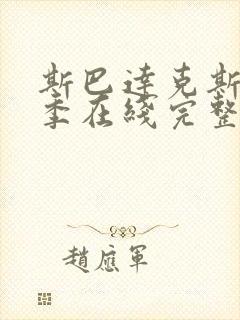 斯巴達克斯
季在綫完整
趙應軍